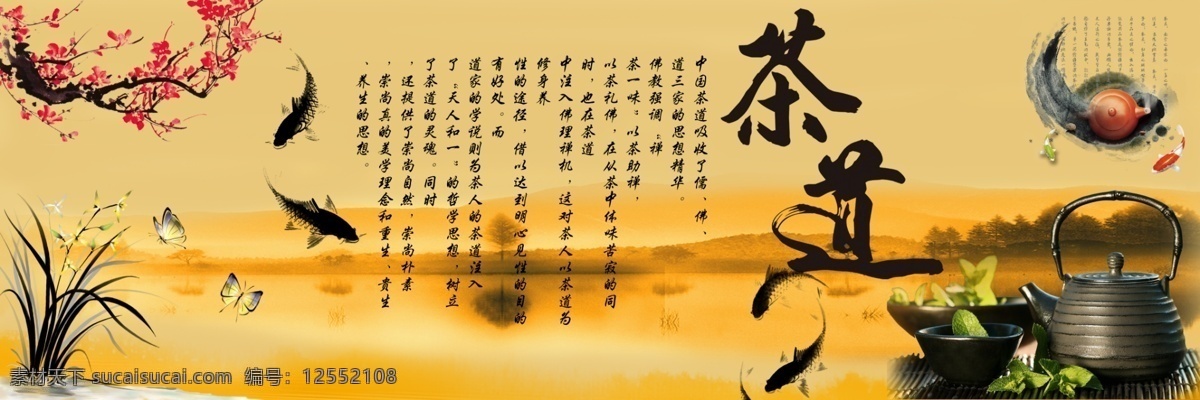 茶道
中国茶道吸收了儒、佛、
道三家的思想精华。
佛教强调“禅
茶一味”以茶助禅，
以茶礼佛，在从茶中体味苦寂的同
时，也在茶道
中注入佛理禅机，这对茶人以茶道为
修身养
性的途径，借以达到明心见性的目的
有好处。而
道家的学说则为茶人的茶道注入
了“天人和一”的哲学思想，树立
了茶道的灵魂。同时
，还提供了崇尚自然，崇尚朴素
，崇尚真的美学理念和重生、贵生
、养生的思想。
素材天下 sucaisucai.com 编号：12552108